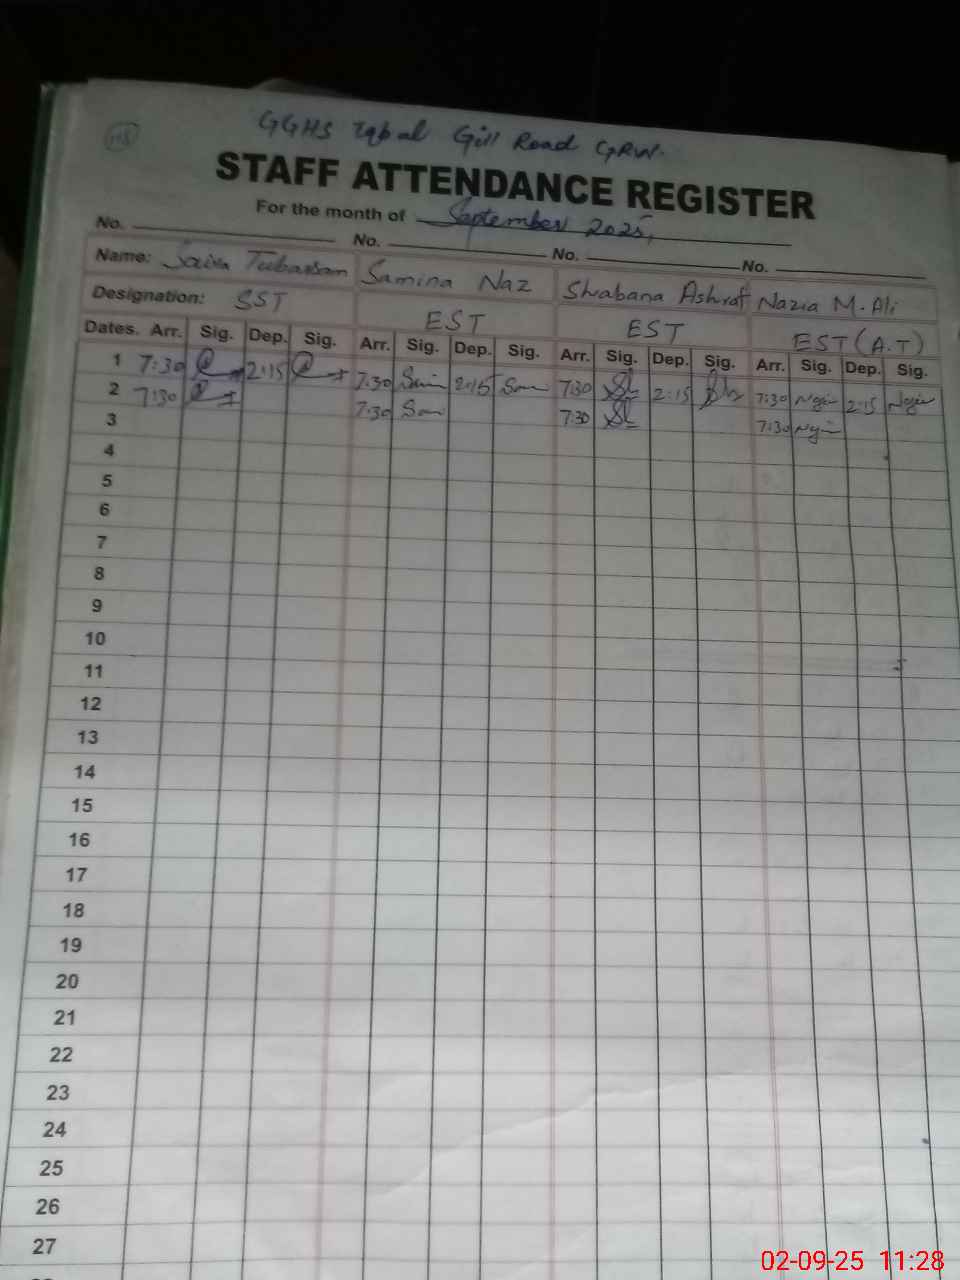 GGHS Iqbal Gill Road GRW.
STAFF ATTENDANCE REGISTER
For the month of September 2025,
No. No. No. No.
Name: Saira Tubassam Samina Naz Shabana Ashraf Nazia M. Ali
Designation: SST EST EST EST (A.T)
Dates. Arr. Sig. Dep. Sig. Arr. Sig. Dep. Sig. Arr. Sig. Dep. Sig. Arr. Sig. Dep. Sig.
1 7:30 2:15 7:30 2:15 7:30 2:15 7:30 2:15
2 7:30 7:30 7:30 7:30
3
4
5
6
7
8
9
10
11
12
13
14
15
16
17
18
19
20
21
22
23
24
25
26
27
02-09-25 11:28